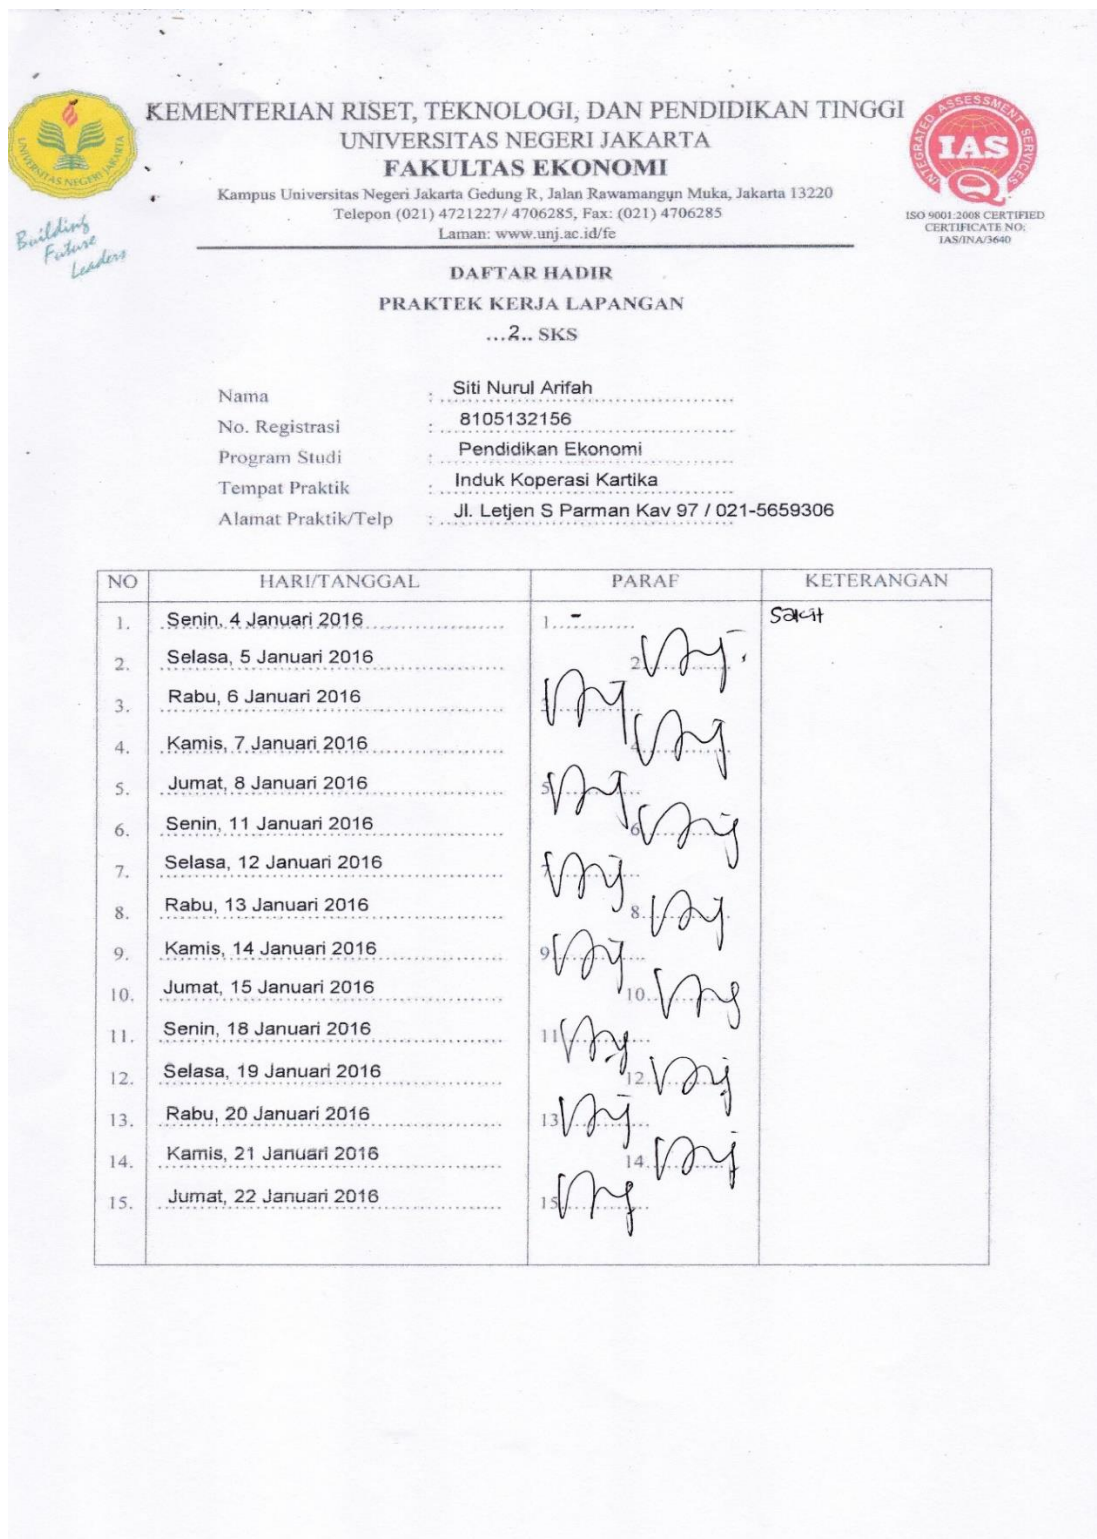 KEMENTERIAN RISET, TEKNOLOGI, DAN PENDIDIKAN TINGGI
UNIVERSITAS NEGERI JAKARTA
FAKULTAS EKONOMI
Kampus Universitas Negeri Jakarta Gedung R, Jalan Rawamangun Muka, Jakarta 13220
Telepon (021) 4721227/ 4706285, Fax: (021) 4706285
Laman: www.unj.ac.id/fe
UNIVERSITAS NEGERI JAKARTA
Building
Future
Leaders
INTEGRATED ASSESSMENT SERVICES
IAS
Q
ISO 9001:2008 CERTIFIED
CERTIFICATE NO:
IAS/INA/3640
DAFTAR HADIR
PRAKTEK KERJA LAPANGAN
...2.. SKS
Nama : Siti Nurul Arifah
No. Registrasi : 8105132156
Program Studi : Pendidikan Ekonomi
Tempat Praktik : Induk Koperasi Kartika
Alamat Praktik/Telp : Jl. Letjen S Parman Kav 97 / 021-5659306
NO HARI/TANGGAL PARAF KETERANGAN
1. Senin, 4 Januari 2016 1. - Sakit
2. Selasa, 5 Januari 2016 2.
3. Rabu, 6 Januari 2016 3.
4. Kamis, 7 Januari 2016 4.
5. Jumat, 8 Januari 2016 5.
6. Senin, 11 Januari 2016 6.
7. Selasa, 12 Januari 2016 7.
8. Rabu, 13 Januari 2016 8.
9. Kamis, 14 Januari 2016 9.
10. Jumat, 15 Januari 2016 10.
11. Senin, 18 Januari 2016 11.
12. Selasa, 19 Januari 2016 12.
13. Rabu, 20 Januari 2016 13.
14. Kamis, 21 Januari 2016 14.
15. Jumat, 22 Januari 2016 15.